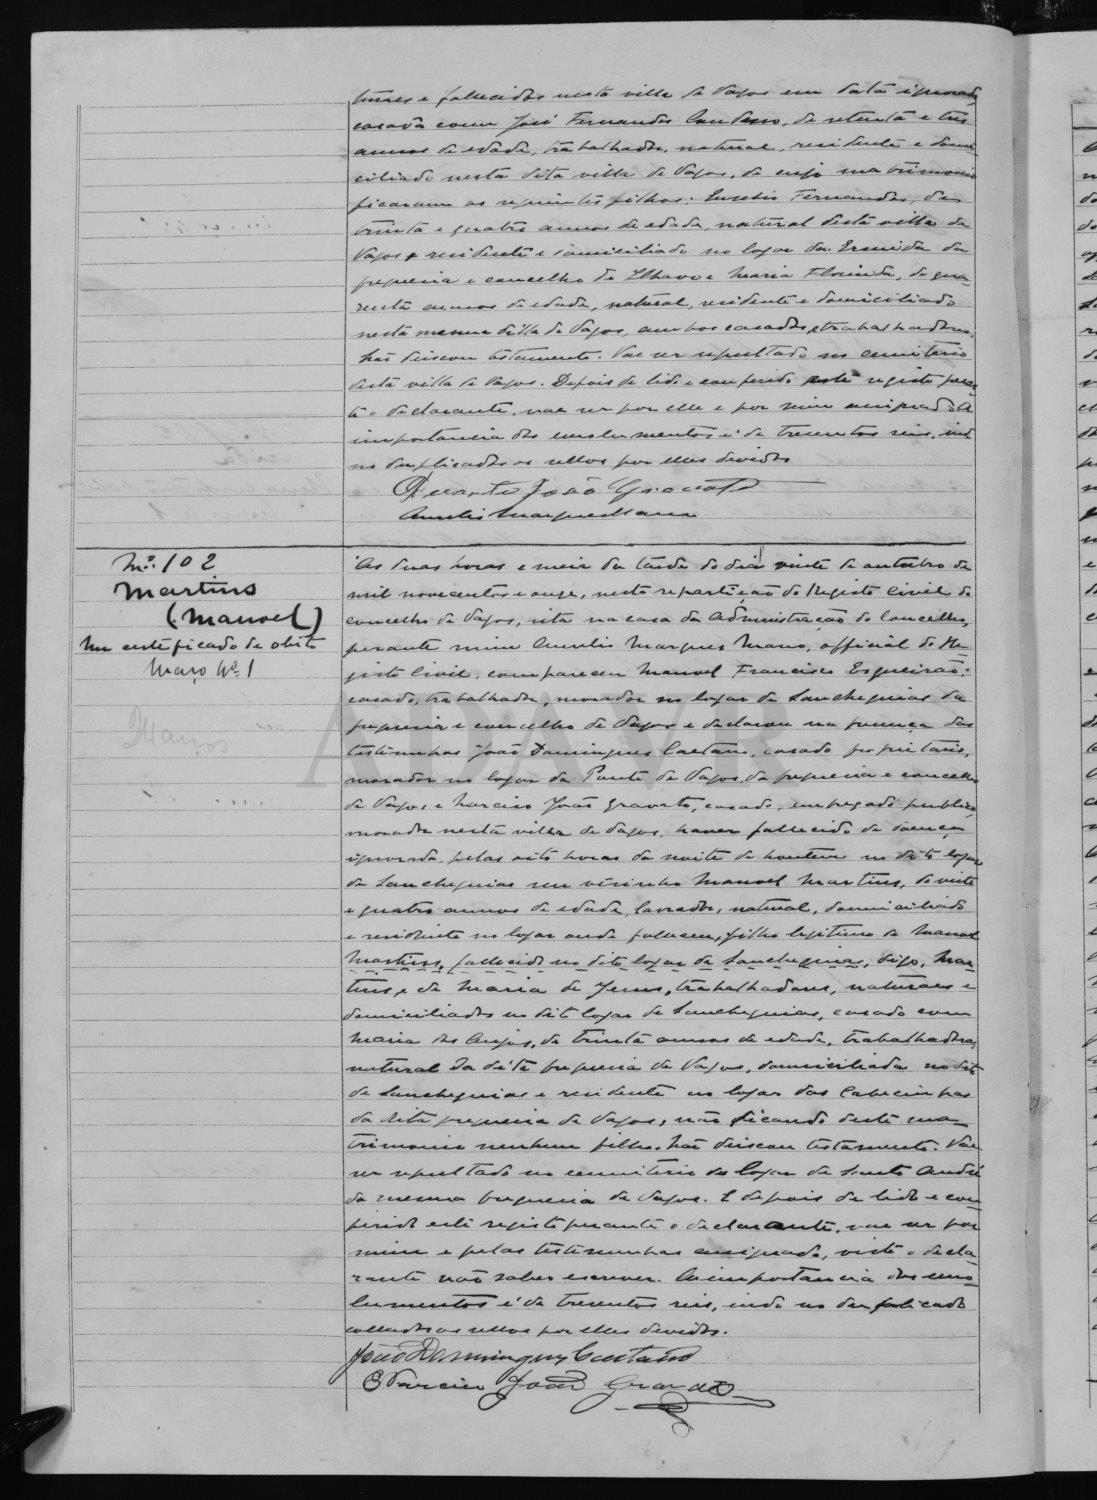 e fallecidos nesta villa de Vagos em data ignorada,
casada com José Fernandes Candeas, de setenta e tres
annos de edade, trabalhador, natural, residente e domi-
ciliado nesta dita villa de Vagos, de cujo matrimonio
ficaram os seguintes filhos: Eusebio Fernandes, de
trinta e quatro annos de edade, natural desta villa de
Vagos e residente e domiciliado no logar da Ermida da
freguesia e concelho de Ilhavo e Maria Florinda, de qua-
renta annos de edade, natural, residente e domiciliada
nesta mesma villa de Vagos, ambos casados e trabalhadores.
Não deixou testamento. Vae ser sepultada no cemiterio
desta villa de Vagos. Depois de lido e conferido este registo peran-
te o declarante, vae ser por elle e por mim assignado. A
importancia dos emolumentos é de trezentos reis, indo
no duplicado os sellos por elles devidos
João Gravato
Aurelio Marques Mano
Nº 102
Martins
(Manoel)
Um certificado de obito
Maço Nº 1
As duas horas e meia da tarde do dia vinte de outubro de
mil novecentos e onze, nesta repartição do Registo Civil do
concelho de Vagos, sita na casa da Administração do Concelho,
perante mim Aurelio Marques Mano, official do Re-
gisto Civil, compareceu Manoel Francisco Esgueirão,
casado, trabalhador, morador no logar de Sanchequias da
freguesia e concelho de Vagos e declarou na presença das
testimunhas João Domingues Caetano, casado, proprietario,
morador no logar da Ponte de Vagos, da freguesia e concelho
de Vagos, e Narciso João Gravato, casado, empregado publico,
morador nesta villa de Vagos, haver fallecido de doença
ignorada, pelas oito horas da noite de hontem no dito logar
de Sanchequias seu visinho Manoel Martins, de vinte
e quatro annos de edade, lavrador, natural, domiciliado
e residente no logar onde falleceu, filho legitimo de Manoel
Martins, fallecido no dito logar de Sanchequias, digo, Mar-
tins, e de Maria de Jesus, trabalhadores, naturaes e
domiciliados no dito logar de Sanchequias, casado com
Maria dos Anjos, de trinta annos de edade, trabalhadora,
natural da dita freguesia de Vagos, domiciliada no dito
de Sanchequias e residente no logar das Cabecinhas
da dita freguesia de Vagos, não ficando deste ma-
trimonio nenhum filho. Não deixou testamento. Vae
ser sepultado no cemiterio do logar de Santo André
da mesma freguesia de Vagos. E depois de lido e con-
ferido este registo perante o declarante, vae ser por
mim e pelas testimunhas assignado, visto o decla-
rante não saber escrever. A importancia dos emo-
lumentos é de trezentos reis, indo no duplicado
collados os sellos por elles devidos.
João Domingues Caetano
Narciso João Gravato